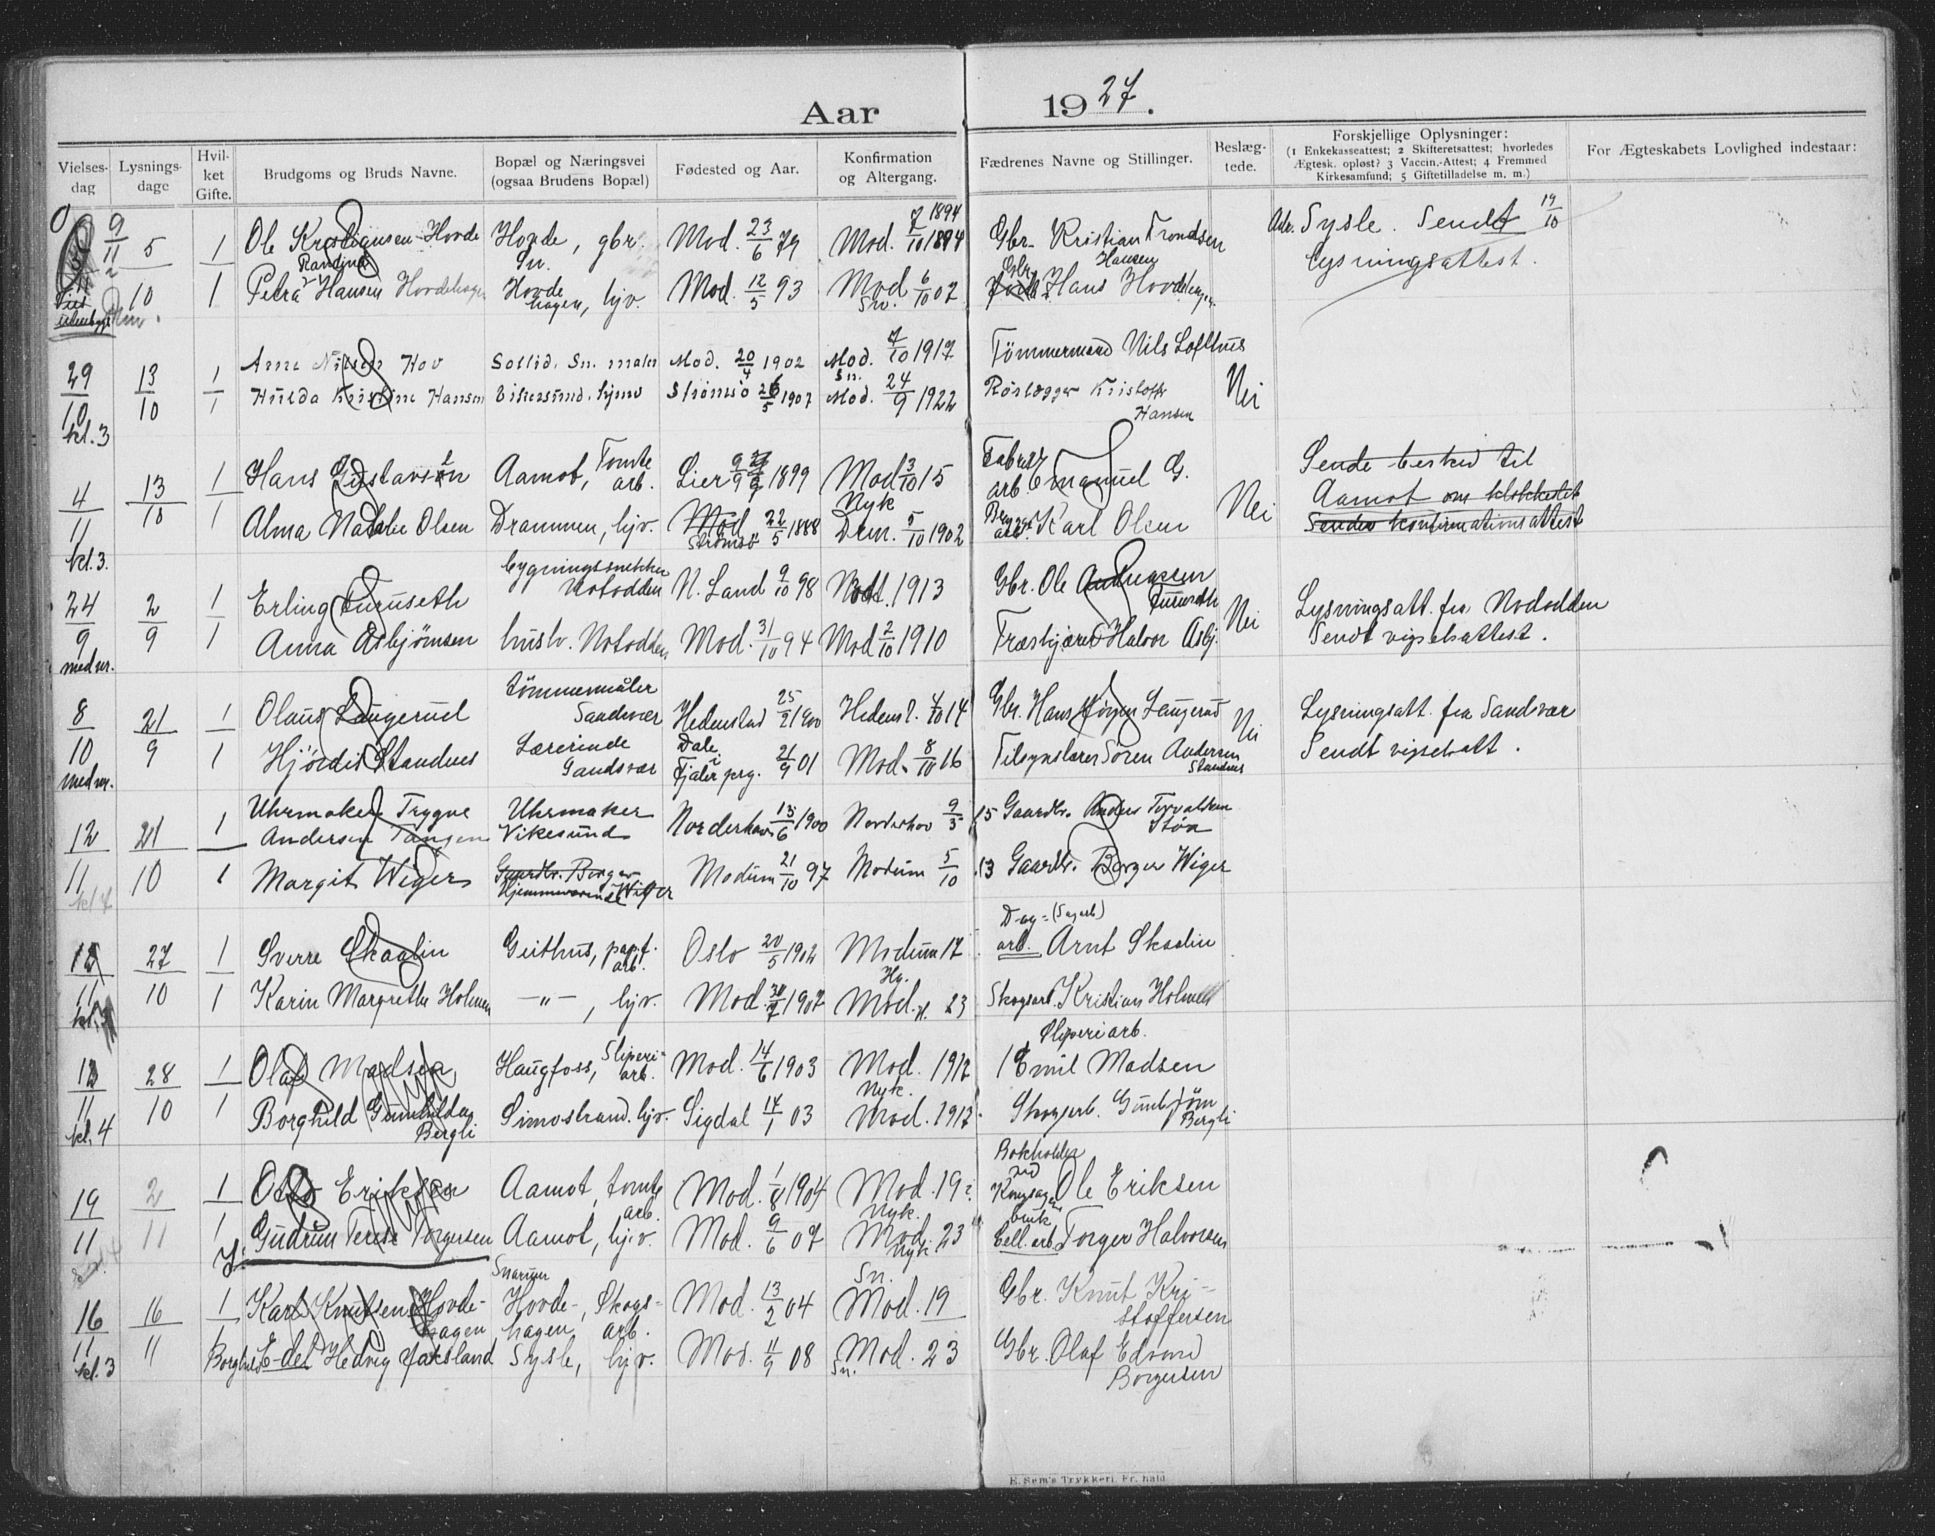 Aar 1927.
Vielses-dag
Lysnings-dage
Hvil-ket Gifte.
Brudgoms og Bruds Navne.
Bopæl og Næringsvei (ogsaa Brudens Bopæl)
Fødested og Aar.
Konfirmation og Altergang.
Fædrenes Navne og Stillinger.
Beslæg-tede.
Forskjellige Oplysninger:
(1 Enkekasseattest; 2 Skifteretsattest; hvorledes Ægtesk. opløst? 3 Vaccin.-Attest; 4 Fremmed Kirkesamfund; 5 Giftetilladelse m. m.)
For Ægteskabets Lovlighed indestaar:
9/11 5 1 Ole Kristiansen Hovde Hovde, gbr. Sn. Mod. 23/6 79 Mod. 7/10 1894 Gbr. Kristian Trondsen Sysle. Sendt 19/10
10 1 Petra Randine Hansen Hovdehagen Hovdehagen, hjv. Mod. 12/5 93 Mod 6/10 07 Sn. Gbr. Hans Hansen Hovdehagen Lysningsattest.
29/10 kl. 3 13/10 1 Arne Nilsen Hov Sollid. Sn. maler Mod. 20/4 1902 Mod. 7/10 1917 Sn. Tømmermand Nils Lofthus Nei
1 Hulda Kristine Hansen Vikersund. hjmv Strømsø 26/5 1907 Mod. 24/9 1922 Rørlægger Kristoffr Hansen
4/11 kl. 3. 13/10 1 Hans Gustavson Aamot, Tomtearb. Lier 9/9 1899 Mod 3/10 15 Nyk Fabrik arb. Emanuel G. Nei Sende besked til
1 Alma Natalie Olsen Drammen, hjv. Mod Strømsø 22/5 1888 Drm. 5/10 1902 Brygge arb. Karl Olsen Aamot om klokkeslet
Sender konfirmationsattest
24/9 med nr. 2/9 1 Erling Furuseth bygningssnekker Notodden N. Land 9/10 98 1913 Gbr. Ole Andreassen Furuseth Nei Lysningsatt. fra Nododden
1 Anna Asbjørnsen hustv. Notodden Mod. 31/10 94 Mod 2/10 1910 Halvor Asbj. Sendt vigselattest.
8/10 med nr. 21/9 1 Olaus Laugerud tømmermåler Sandsvær Hedenstad 25/2 1900 Hedenst. 4/10 14 Gbr. Hans Jørgen Laugerud Nei Lysningsatt. fra Sandsvær
1 Hjørdis Standnes Lærerinde Sandsvær Dale i Fjaler prg. 21/9 01 Mod. 8/10 16 Tilsynslærer Søren Andersen Standnes Sendt vigselatt.
12/11 kl 4 21/10 1 Uhrmaker Trygve Andersen Tangen Uhrmaker Vikesund Norderhov 13/6 1900 Norderhov 9/5 15 Gaardbr. Anders Torvaldsen Støa
1 Margit Wiger Gaardbr. Borger Wiger Hjemmeværende Modum 21/10 97 Modum 5/10 13 Gaardbr. Borger Wiger
12/11 27/10 1 Sverre Skaalin Geithus, papf. arb. Oslo 20/5 1902 Modum 17 Hg. Dag- (Sagarb) arb. Arnt Skaalin
1 Karin Margrethe Holmen —"—, hjv. Mod. 30/7 1907 Mod. H. 23 Skogsarb. Kristian Holmen
12/11 kl. 4 28/10 1 Olaf Madsen Haugfoss, Sliperi-arb. Mod. 14/6 1903 Mod. 1917 Nyk. Sliperiarb. Emil Madsen
1 Borghild Gunhilda Bergli Simostrand. hjv. Sigdal 14/1 03 Mod. 1917 Skogsarb. Gunbjørn Bergli
19/11 2/11 1 Otto Eriksen Aamot, tomte arb. Mod. 1/8 1904 Mod. 19 Nyk. Bokholder ved Kongsager bruk Ole Eriksen
1 Gudrun Terese Torgersen Aamot, hj.v. Mod. 9/6 07 Mod. Nyk. 23 Cell. arb. Torger Halvorsen
16/11 kl. 3 16/11 1 Karl Knutsen Hovde-hagen Snarum Hovde-hagen, Skogs-arb. Mod. 13/2 04 Sn. Mod. 19 Gbr. Knut Kri-stoffersen
Borghild Edel Hedvig Jaksland Sysle, hjv. Mod. 11/9 08 Mod. 23 Sn. Gbr. Olaf Edvard Borgersen
E. Sem's Trykkeri, Fr. hald